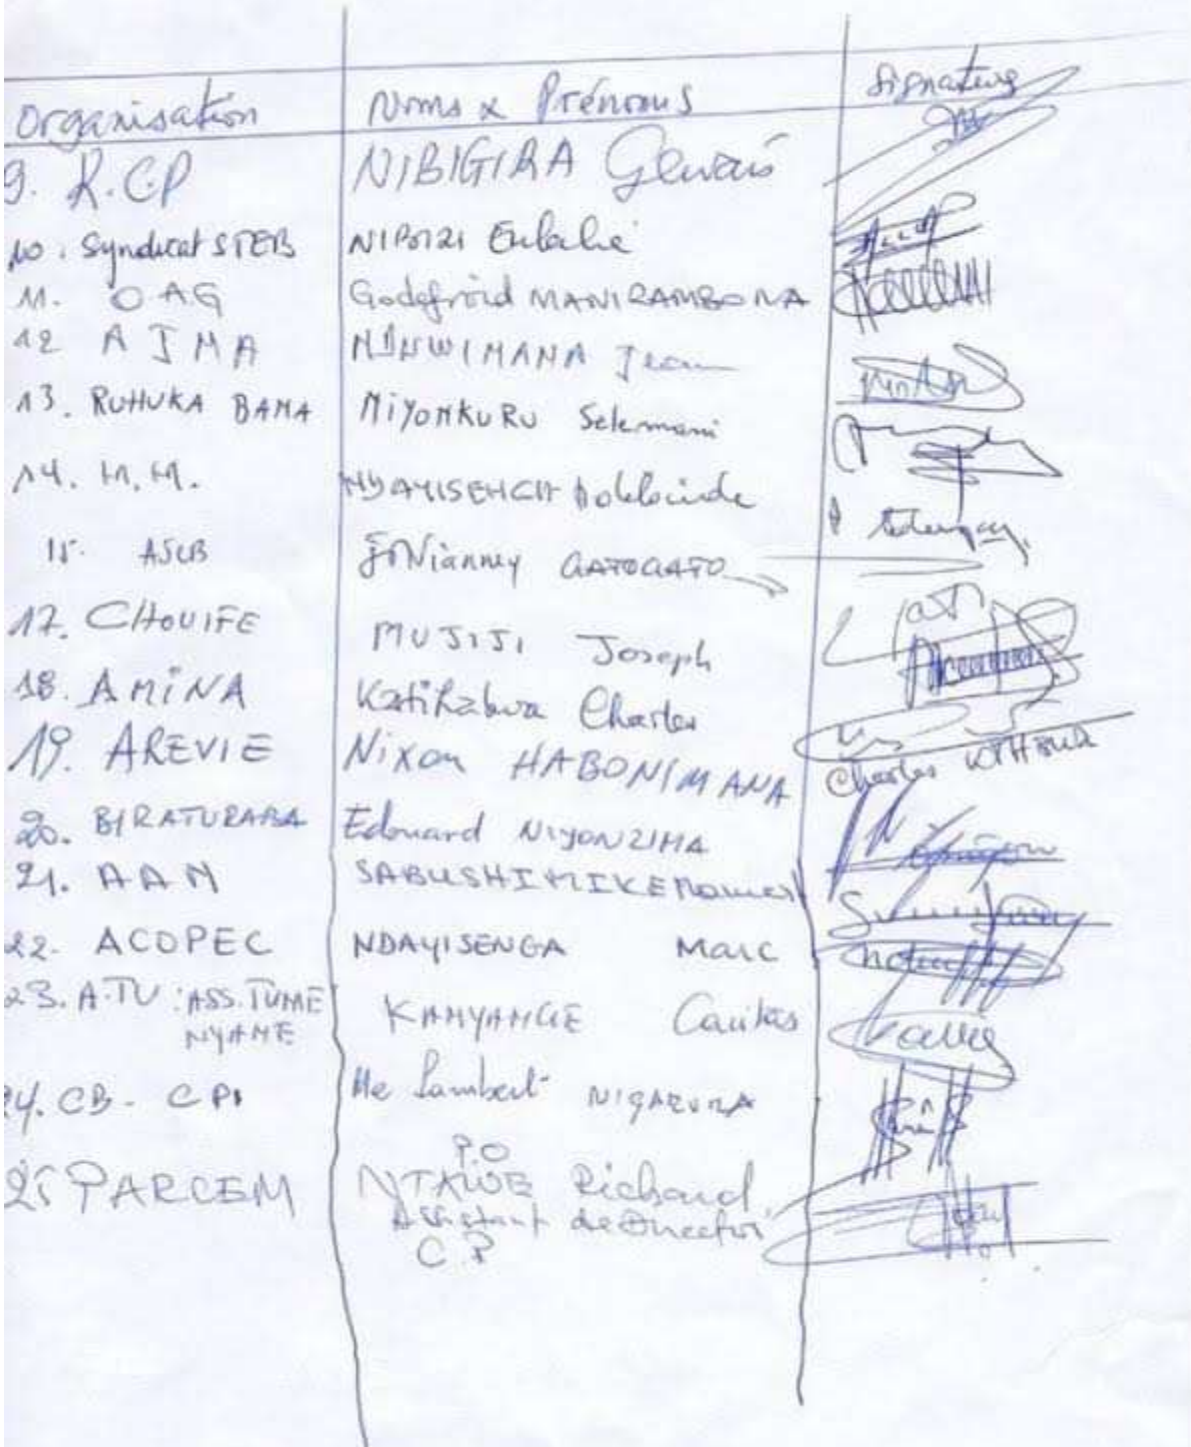 Organisation Noms & Prénoms Signature
9. R.C.P NIBIGIRA Gervais
10. Syndicat STEB NIBIZI Eulalie
11. OAG Godefroid MANIRAMBONA
12 AJMA Jean
13. RUHUKA BAMA NIYONKURU Selemani
14. M.M. NDAYISENGA
15. ASCB J.Vianney GATOGATO
17. CHOUIFE MUJIJI Joseph
18. AMINA Katihabwa Charles
19. AREVIE Nixon HABONIMANA Charles
20. BIRATURABA Edouard NIYONZIMA
21. AAN SABUSHIMIKE
22. ACOPEC NDAYISENGA Marc
23. A.TU : ASS. TUME KANYANGE Caritas
NYAME
24. CB - CPI Me Lambert NIGARURA
P.O
25 PARCEM NTAWE Richard
Assistant de Director
C.P